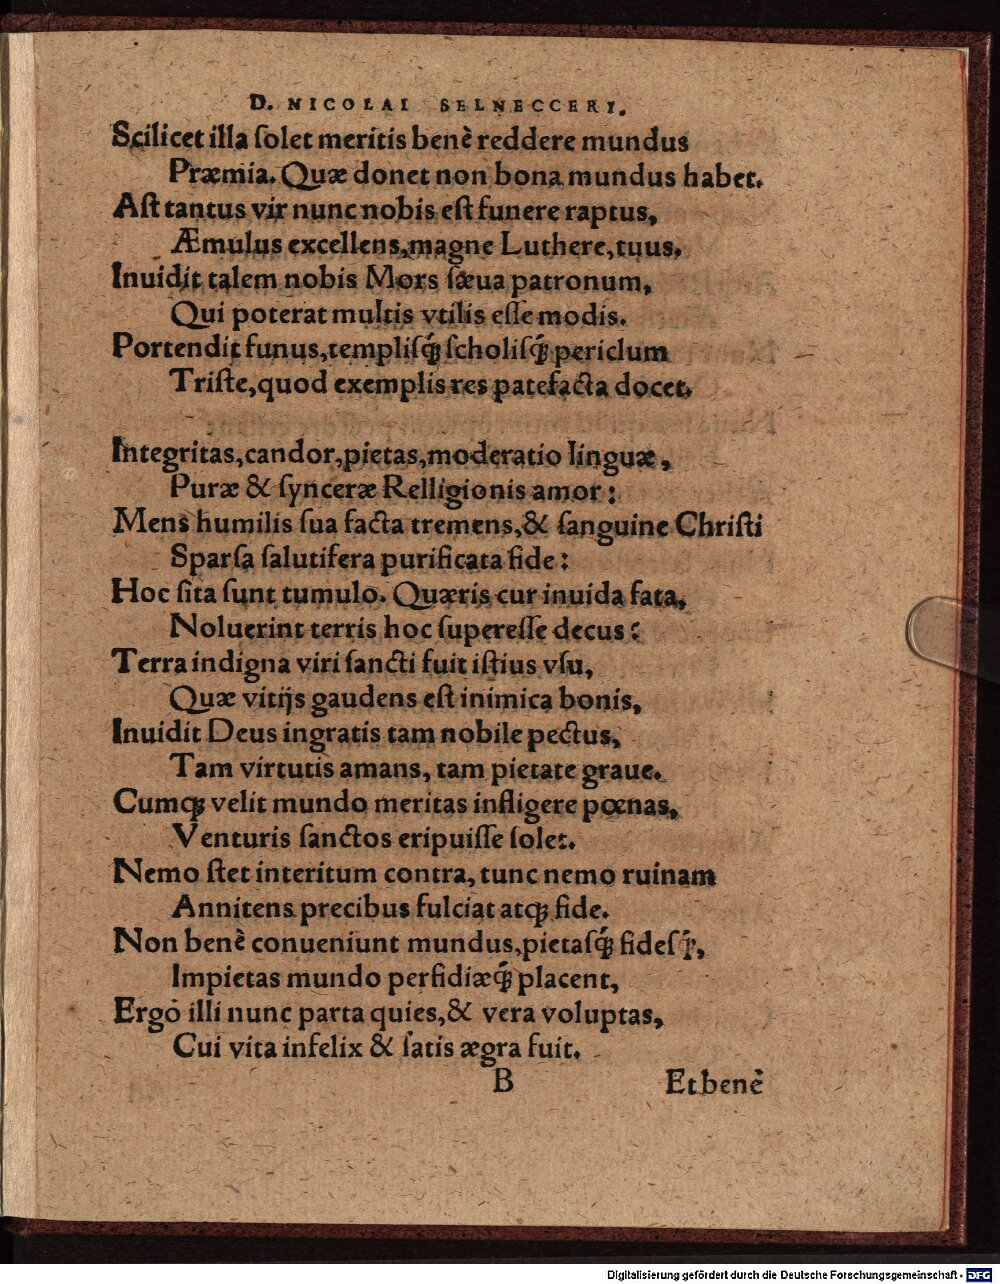 D. NICOLAI SELNECCERI.
Scilicet illa ſolet meritis benè reddere mundus
Præmia. Quæ donet non bona mundus habet.
Aſt tantus vir nunc nobis eſt funere raptus,
Æmulus excellens, magne Luthere, tuus.
Inuidit talem nobis Mors ſæua patronum,
Qui poterat multis vtilis eſſe modis.
Portendit funus, templiſq́ꝫ ſcholiſq́ꝫ periclum
Triſte, quod exemplis res patefacta docet.
Integritas, candor, pietas, moderatio linguæ,
Puræ & ſynceræ Relligionis amor:
Mens humilis ſua facta tremens, & ſanguine Chriſti
Sparſa ſalutifera purificata fide:
Hoc ſita ſunt tumulo. Quæris cur inuida fata,
Noluerint terris hoc ſupereſſe decus?
Terra indigna viri ſancti fuit iſtius vſu,
Quæ vitijs gaudens eſt inimica bonis,
Inuidit Deus ingratis tam nobile pectus,
Tam virtutis amans, tam pietate graue.
Cumqꝫ velit mundo meritas infligere pœnas,
Venturis ſanctos eripuiſſe ſolet.
Nemo ſtet interitum contra, tunc nemo ruinam
Annitens precibus fulciat atqꝫ fide.
Non benè conueniunt mundus, pietaſq́ꝫ fideſq́ꝫ,
Impietas mundo perfidiæq́ꝫ placent,
Ergò illi nunc parta quies, & vera voluptas,
Cui vita infelix & ſatis ægra fuit.
B Et benè
Digitalisierung gefördert durch die Deutsche Forschungsgemeinschaft - DFG